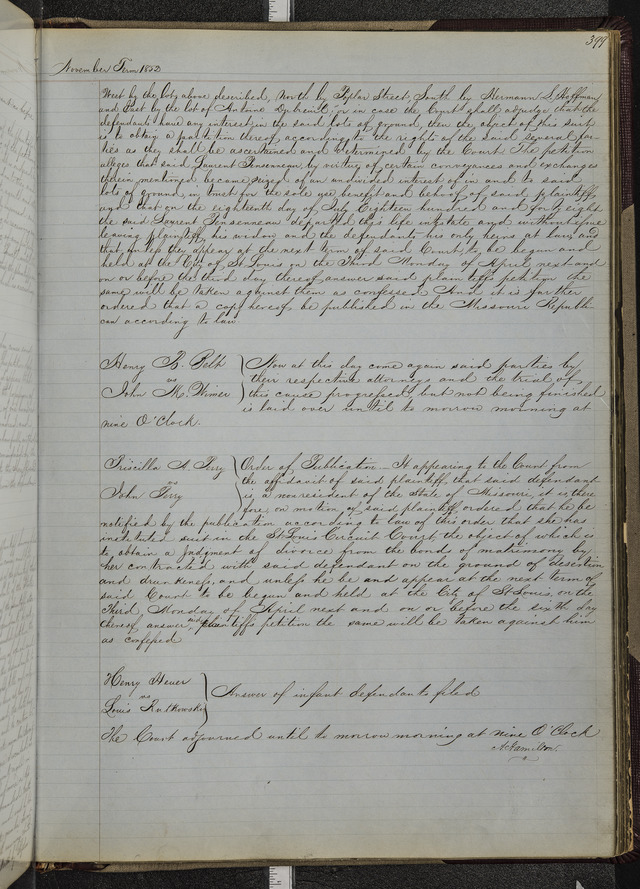 399
November Term 1852
West by the lot above described, North by Poplar Street, South by Hermann S. Hoffman,
and East by the lot of Antoine Dubreuil, or in case the Court shall adjudge that the
defendants have any interest in the said lots of ground, then the object of this suit
is to obtain a partition thereof, according to the rights of the said several par-
ties as they shall be ascertained and determined by the Court The petition
alleges that said Laurent Pensenneau, by virtue of certain conveyances and exchanges
therein mentioned became seized of an undivided interest of in and to said
lots of ground, in trust for the sole use benefit and behoof of said plaintiff,
and that on the eighteenth day of July Eighteen hundred and forty eight
the said Laurent Pensenneau departed this life intestate and without issue
leaving plaintiff, his widow and the defendants his only heirs at law, and
that unless they appear at the next term of said Court, to be begun and
held at the City of St Louis on the Third Monday of April next and
on or before the third day thereof answer said plaintiffs petition the
same will be taken against them as confessed And it is further
ordered that a copy hereof be published in the Missouri Republi-
can according to law.
Henry B. Belt
vs
John M. Wimer
Now at this day come again said parties by
their respective attorneys and the trial of
this cause progressed, but not being finished
is laid over until to morrow morning at
nine O'Clock.
Priscilla A. Terry
vs
John Terry
Order of Publication – It appearing to the Court from
the affidavit of said plaintiff, that said defendant
is a nonresident of the State of Missouri, it is there
fore, on motion of said plaintiff ordered that he be
notified by the publication according to law of this order that she has
instituted suit in the St Louis Circuit Court, the object of which is
to obtain a judgment of divorce from the bonds of matrimony by
her contracted with said defendant on the ground of desertion
and drunkeness, and unless he be and appear at the next term of
said Court to be begun and held at the City of St Louis, on the
Third Monday of April next and on or before the sixth day
thereof answer said plaintiffs petition the same will be taken against him
as confessed
Henry Heuer
vs
Louis Rutkowski
Answer of infant defendants filed
The Court adjourned until to morrow morning at nine O'Clock
A. Hamilton.